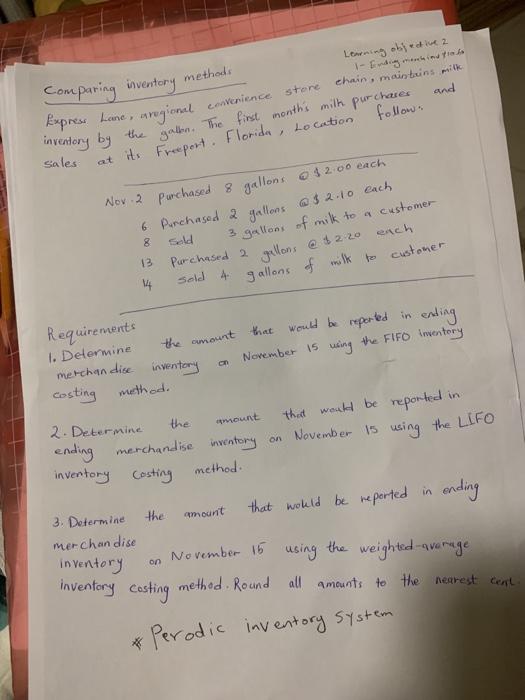 Learning objective 2
1- Ending merchind
Comparing inventory methods
Express Lane, aregional convenience store chain, maintains milk
inventory by the gallon. The first month's milk purchases and
sales at its Freeport. Florida, Location follow:
Nov. 2 Purchased 8 gallons @ $2.00 each
6 Purchased 2 gallons @ $2.10 each
8 Sold 3 gallons of milk to a customer
13 Purchased 2 gallons @ $2.20 each
14 Sold 4 gallons of milk to customer
Requirements
1. Determine the amount that would be reported in ending
merchandise inventory on November 15 using the FIFO inventory
costing method.
2. Determine the amount that would be reported in
ending merchandise inventory on November 15 using the LIFO
inventory Costing method.
3. Determine the amount that would be reported in ending
merchandise
inventory on November 15 using the weighted-average
inventory costing method. Round all amounts to the nearest cent.
* Perodic inventory System